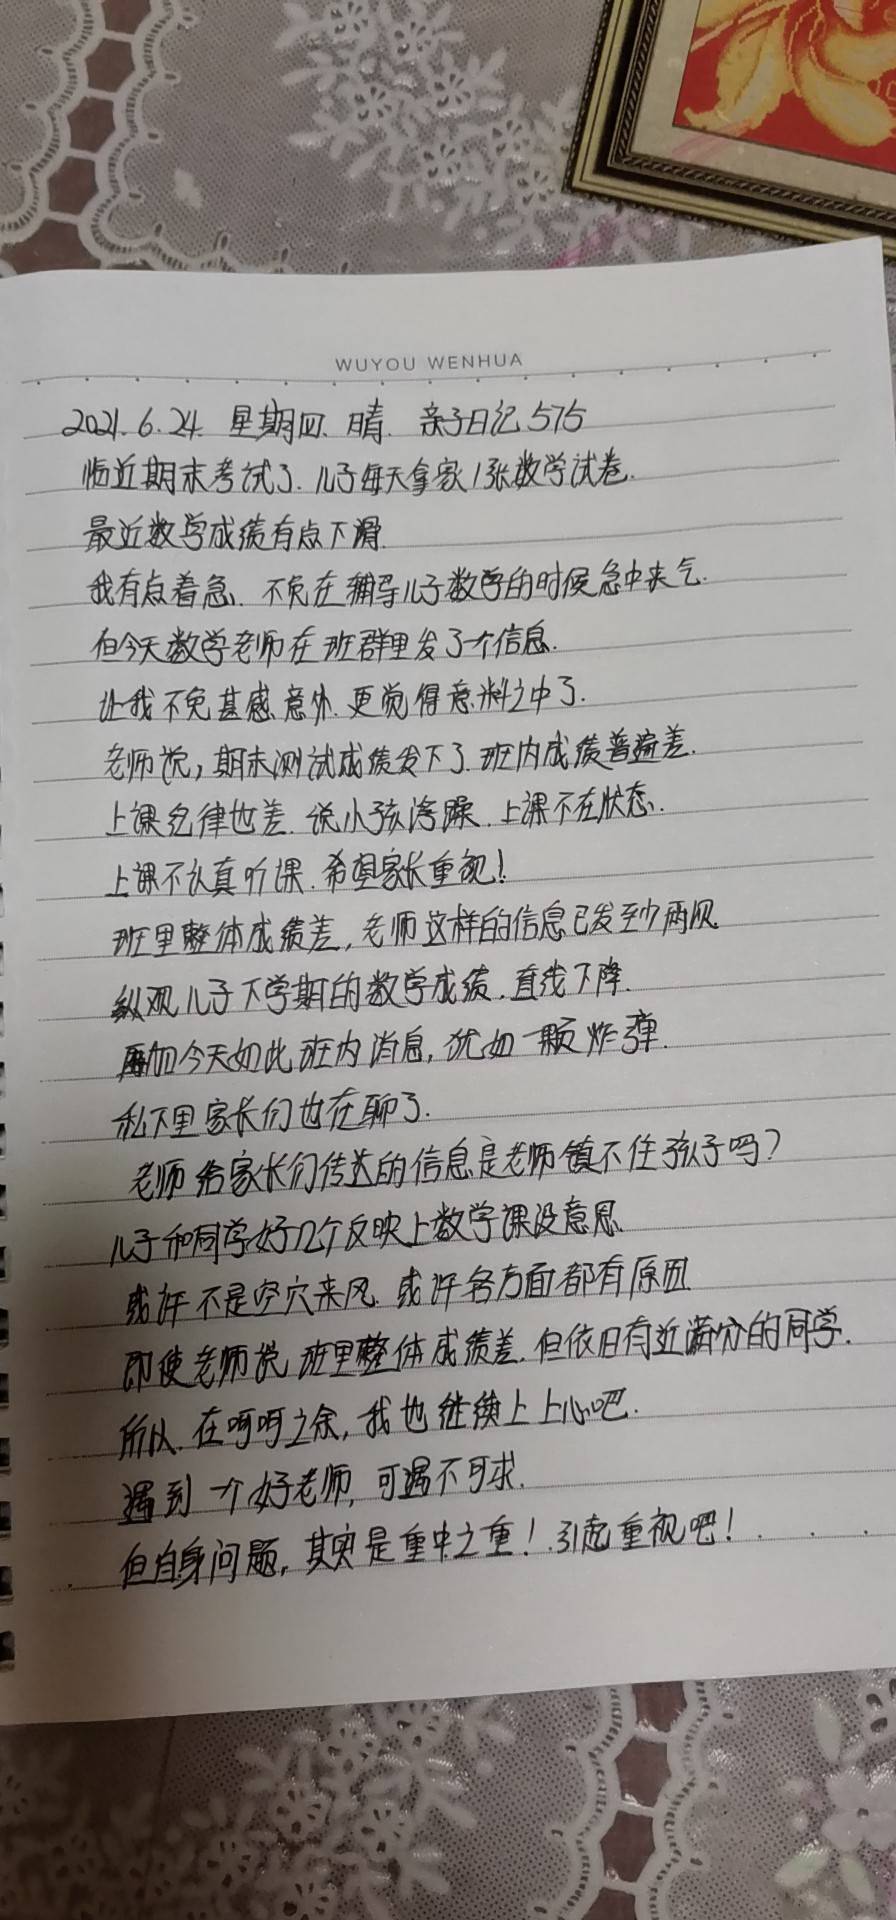 WUYOU WENHUA
2021.6.24. 星期四. 晴. 亲子日记575
临近期末考试了.儿子每天拿家1张数学试卷.
最近数学成绩有点下滑.
我有点着急. 不免在辅导儿子数学的时候急中夹气.
但今天数学老师在班群里发了个信息.
让我不免甚感意外.更觉得意料之中了.
老师说,期末测试成绩发下了.班内成绩普遍差.
上课纪律也差.说小孩浮躁.上课不在状态.
上课不认真听课.希望家长重视!
班里整体成绩差,老师这样的信息已发至少两次
纵观儿子下学期的数学成绩.直线下降.
再加今天如此班内消息,犹如一颗炸弹.
私下里家长们也在聊了.
老师给家长们传达的信息是老师镇不住孩子吗?
儿子和同学好几个反映上数学课没意思
或许不是空穴来风.或许各方面都有原因
即使老师说班里整体成绩差.但依旧有近满分的同学.
所以.在呵呵之余,我也继续上上心吧.
遇到一个好老师,可遇不可求.
但自身问题,其实是重中之重!引起重视吧!